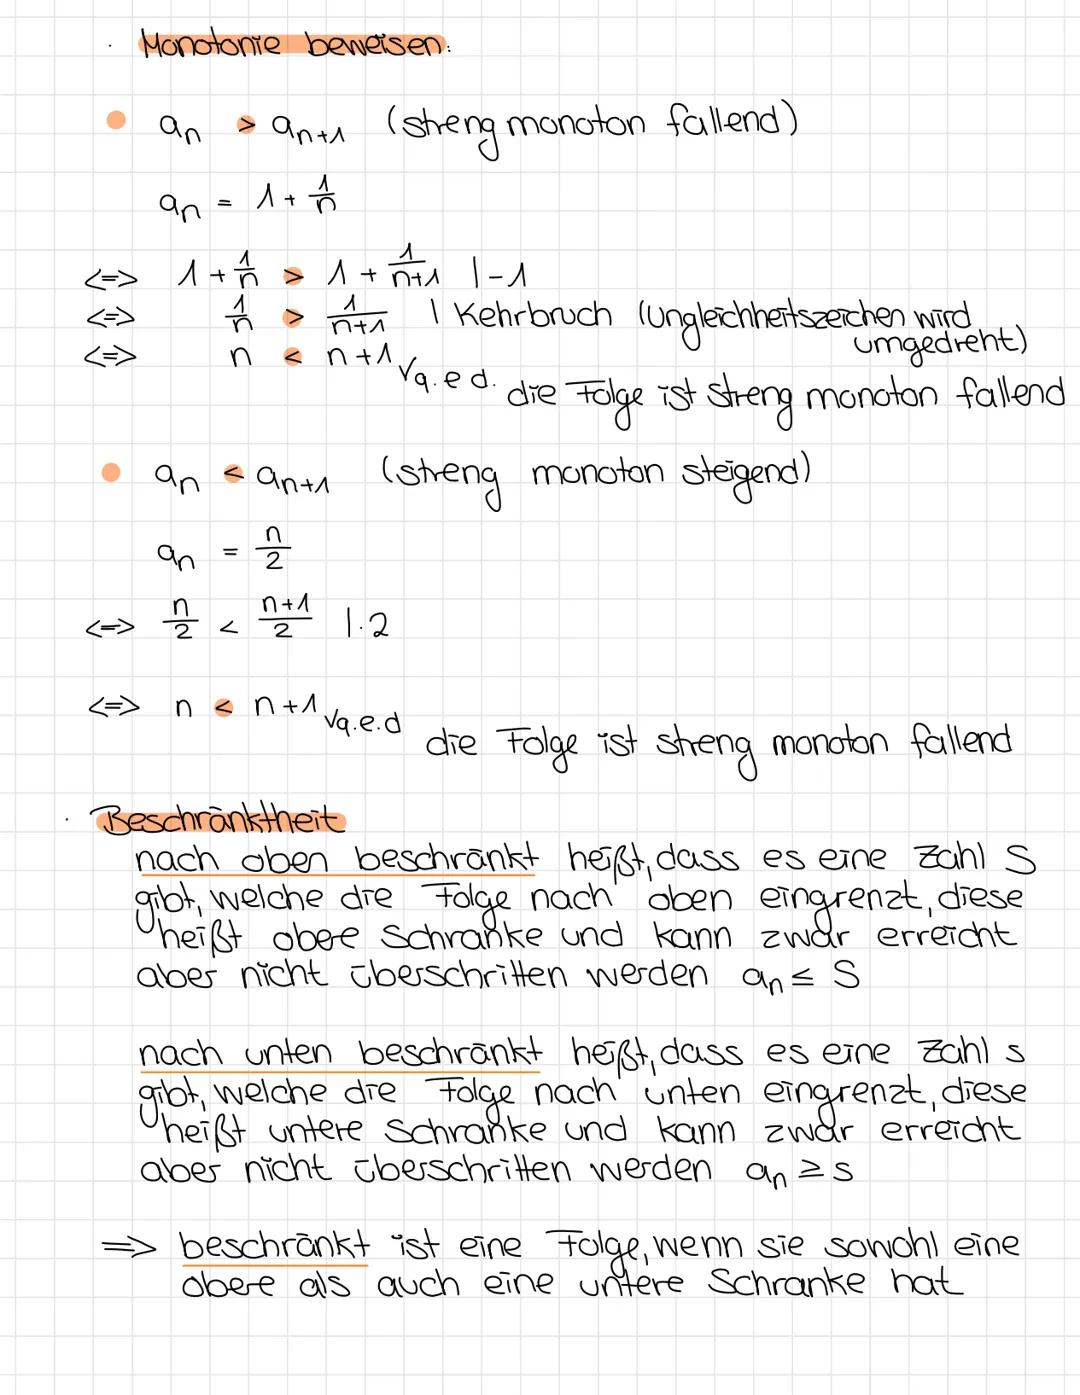 · Monotonie beweisen:
• an > an+1 (streng monoton fallend)
an = 1 + 1/n
<=> 1 + 1/n > 1 + 1/n+1 |-1
<=> 1/n > 1/n+1 | Kehrbruch (Ungleichheitszeichen wird umgedreht)
<=> n < n+1 √q.e.d. die Folge ist streng monoton fallend
• an < an+1 (streng monoton steigend)
an = n/2
<=> n/2 < n+1/2 |·2
<=> n < n+1 √q.e.d die Folge ist streng monoton fallend
· Beschränktheit
nach oben beschränkt heißt, dass es eine Zahl S
gibt, welche die Folge nach oben eingrenzt, diese
heißt obere Schranke und kann zwar erreicht
aber nicht überschritten werden an ≤ S
nach unten beschränkt heißt, dass es eine Zahl s
gibt, welche die Folge nach unten eingrenzt, diese
heißt untere Schranke und kann zwar erreicht
aber nicht überschritten werden an ≥ s
=> beschränkt ist eine Folge, wenn sie sowohl eine
obere als auch eine untere Schranke hat